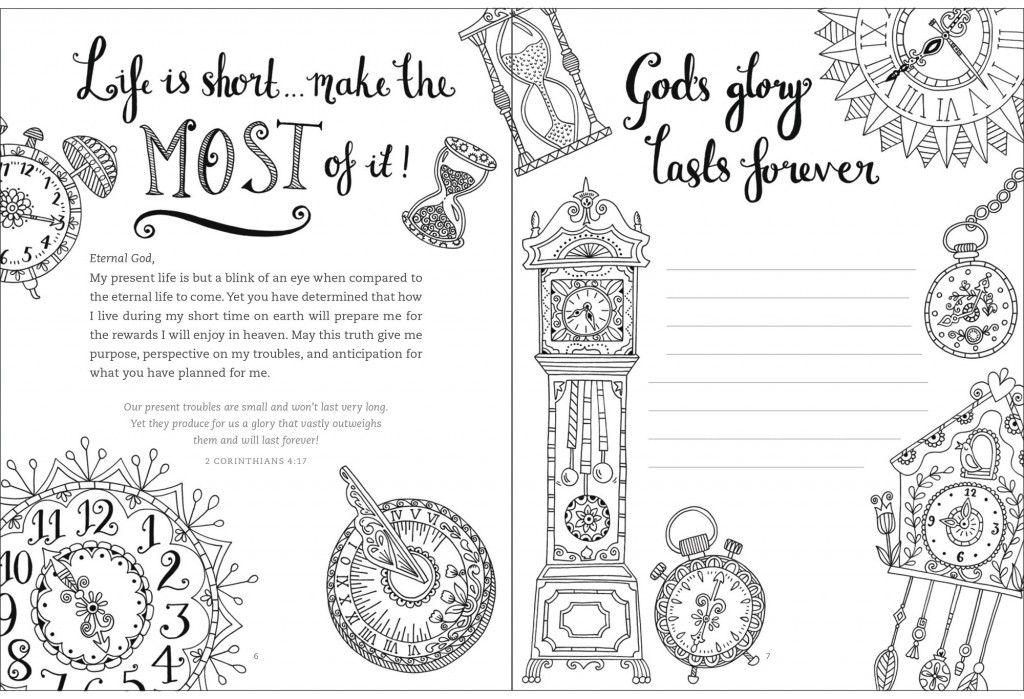 Life is short... make the
MOST
of it!
11 12 1
2
3
4
6 5
Eternal God,
My present life is but a blink of an eye when compared to
the eternal life to come. Yet you have determined that how
I live during my short time on earth will prepare me for
the rewards I will enjoy in heaven. May this truth give me
purpose, perspective on my troubles, and anticipation for
what you have planned for me.
Our present troubles are small and won't last very long.
Yet they produce for us a glory that vastly outweighs
them and will last forever!
2 CORINTHIANS 4:17
11 12 1
10 2
9 3
8 4
6
God's glory
lasts forever
12
9 3
6
7